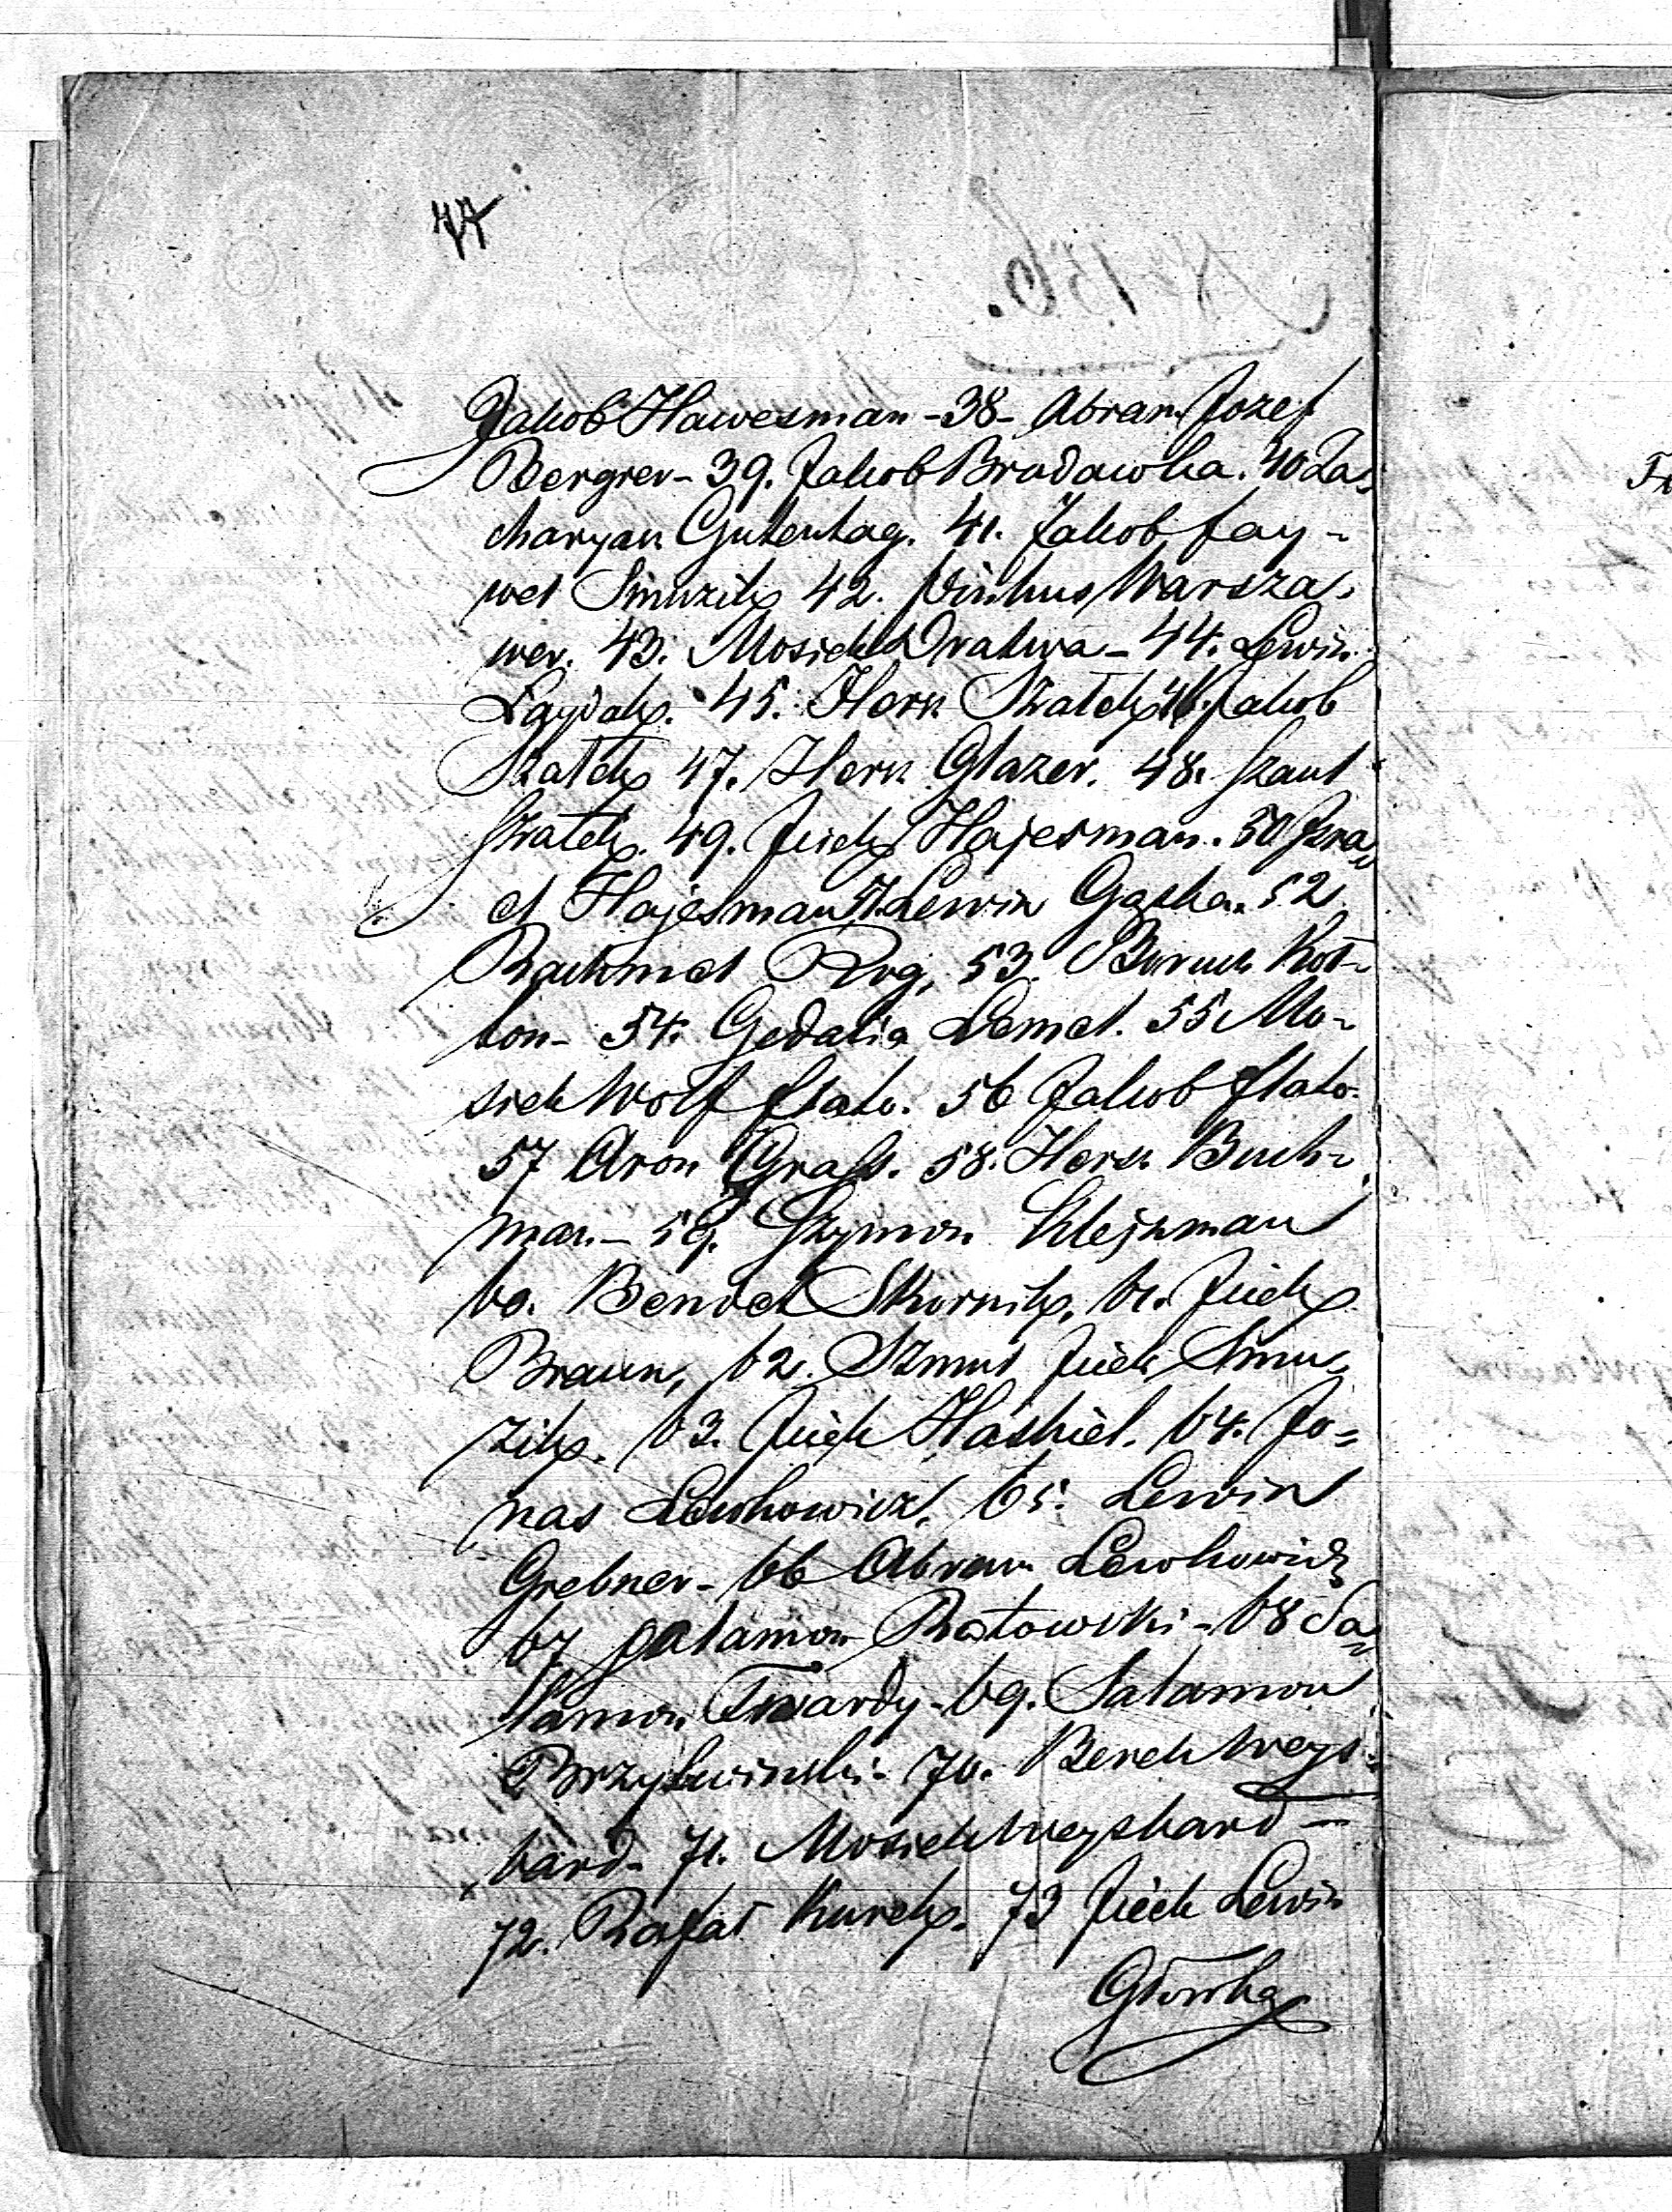 77
Jakob Hawesman - 38 - Abram Jozef
Bergrer - 39. Jakob Bradawka. 40 Za-
charyan Gutentag. 41. Jakob Fay-
wel Smuzik 42. Pinkus Warsza-
wer. 43. Mosiek Dratwa - 44. Lewin
Layzak. 45. Herk Szatek 46. Jakob
Szatek 47. Herk Glazer. 48. Szaul
Szatek. 49. Jcick Hajesman. 50 Jzra-
el Hajesman 51. Lewin Gaska. 52
Rachmel Rog, 53. Boruch Kot-
ton - 54. Gedalia Lemel. 55 Mo-
siek Wolf Flato. 56 Jakob Flato.
57 Aron Grass. 58. Hersz Buch-
man. - 59. Szymon Klejnman
60. Bendet Skornik, 61. Jcick
Braun, 62. Szmul Jcick Smu-
zik. 63. Jcick Haskiel. 64. Jo-
nas Lewkowicz, 65. Lewin
Grebner - 66 Abram Lewkowicz
67 Salamon Ratowski - 68 Sa-
lamon Twardy - 69. Salamon
70. Berek Weys-
bard - 71. Mosiek Weysbard -
72. Rafal Kurek. 73 Jcick Lewin
Główka